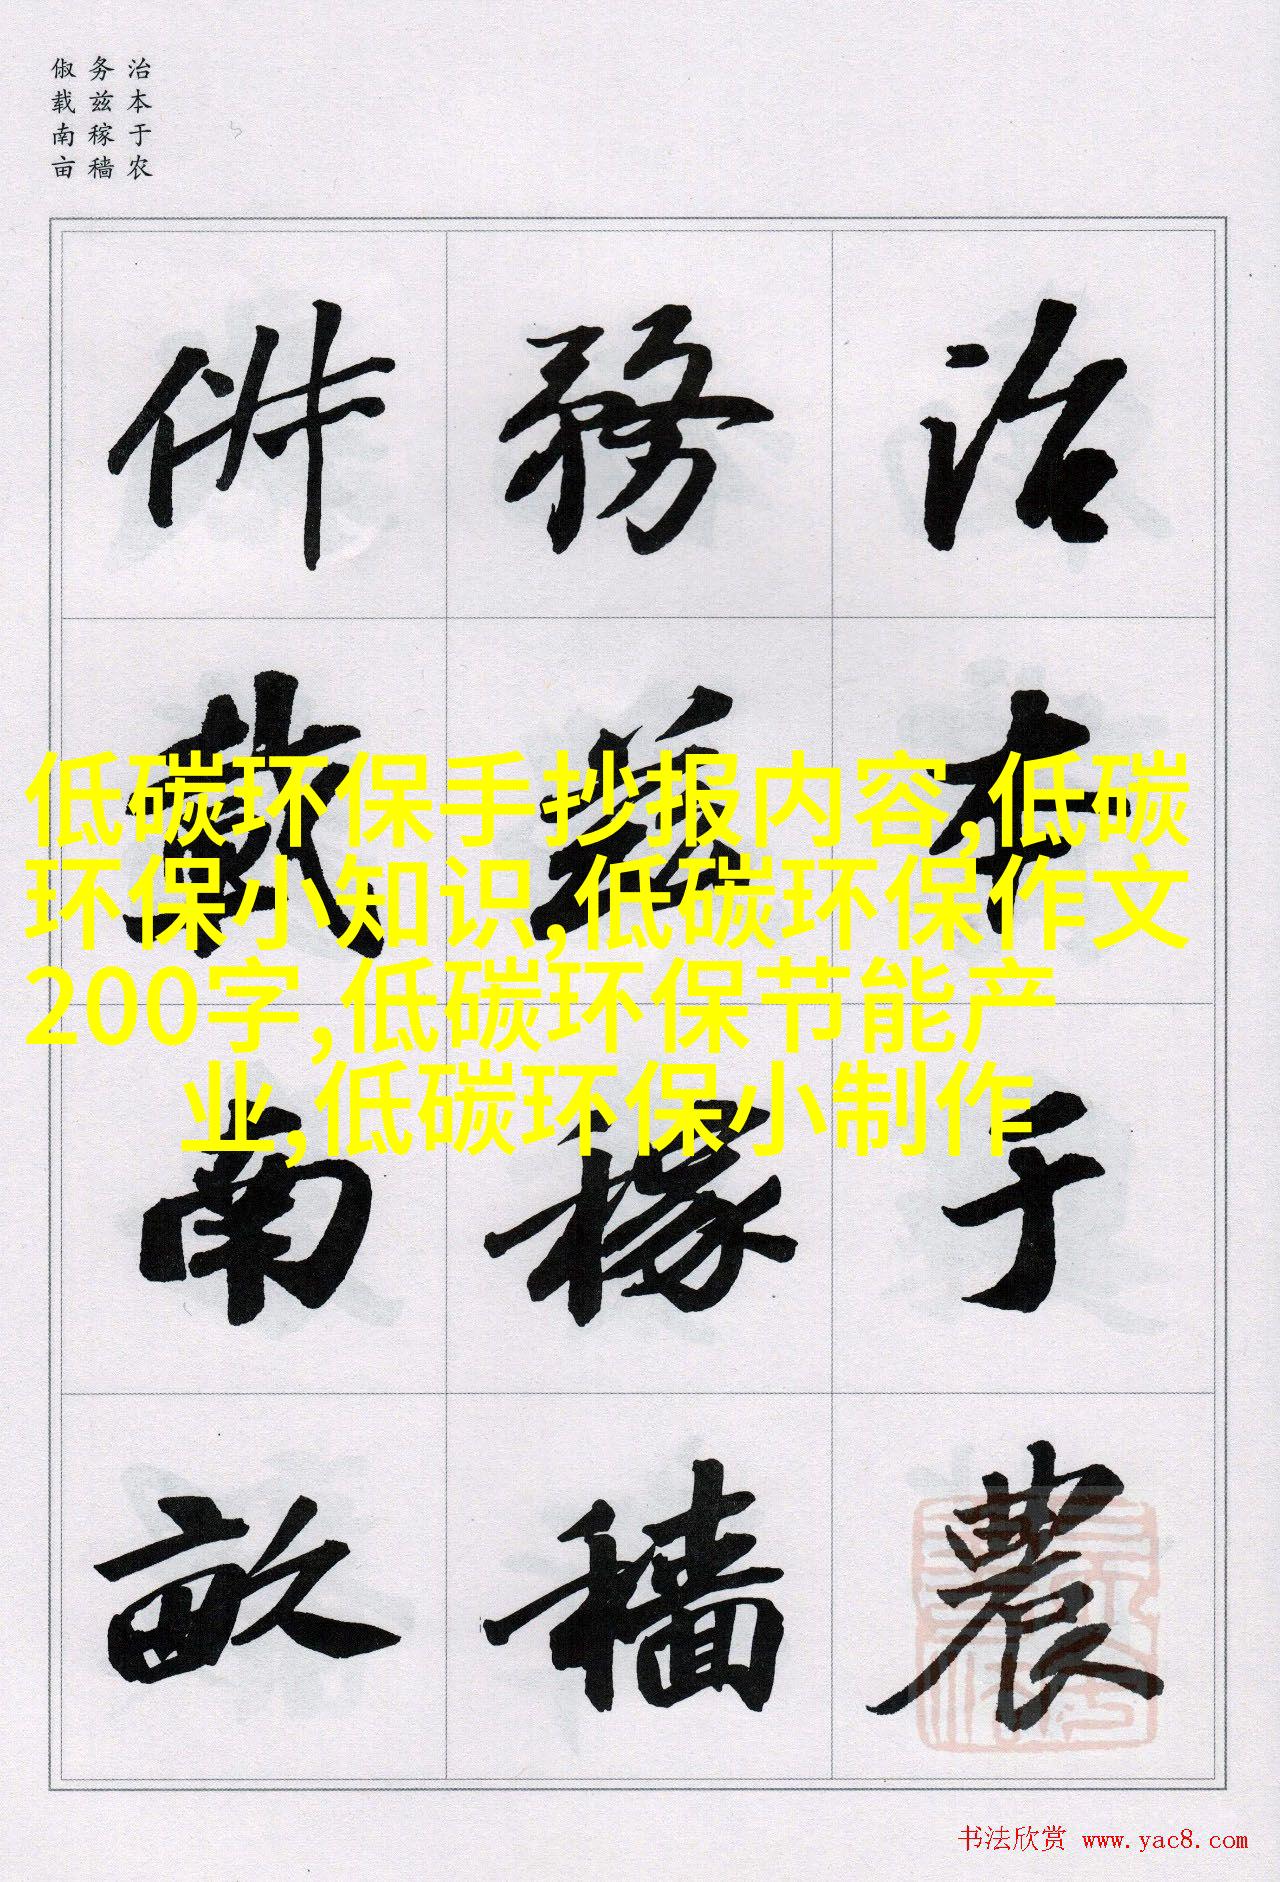 治本于农
务兹稼穑
俶载南亩
治本于農
務茲稼穡
俶載南畝
低碳环保手抄报内容,低碳
环保小知识,低碳环保作文
200字,低碳环保节能产
业,低碳环保小制作
书法欣赏 www.yac8.com